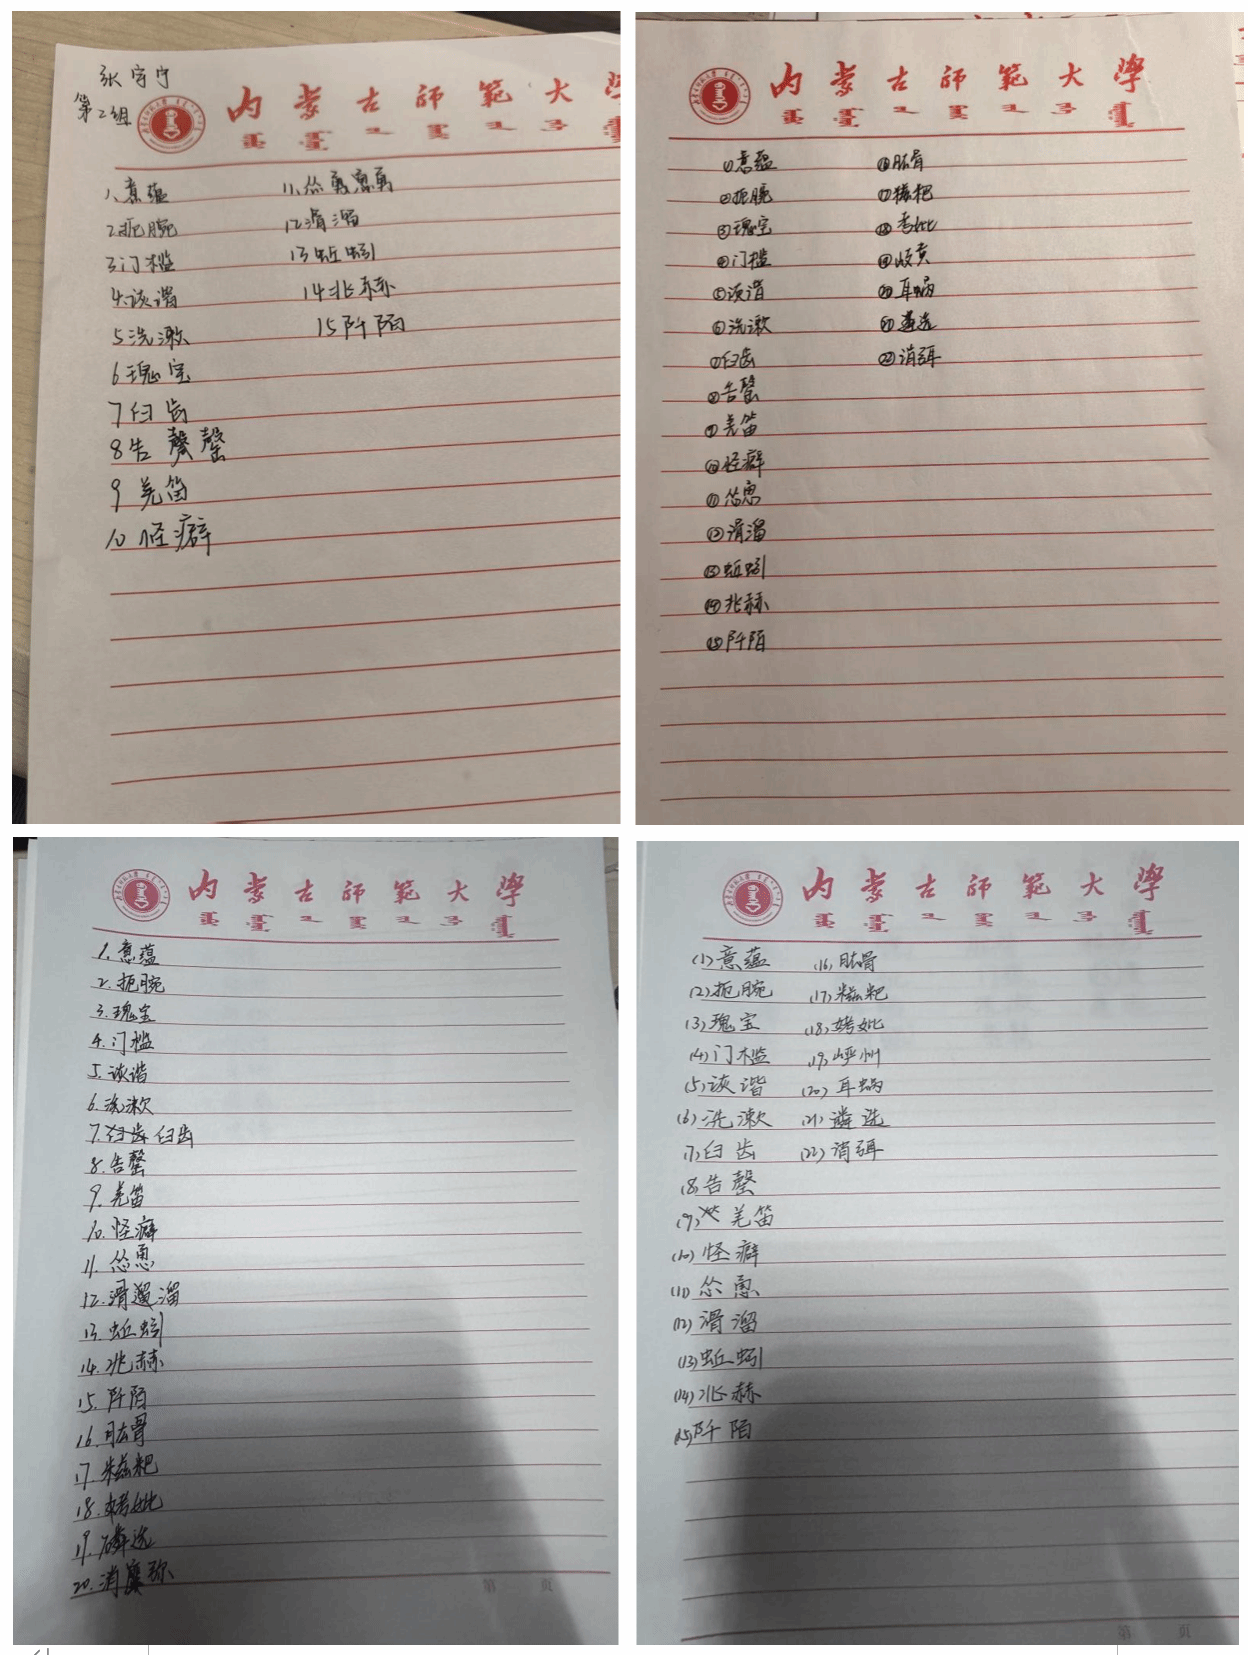 张宇宁
第2组
内蒙古师范大学
1.意蕴
2.扼腕
3.门槛
4.诙谐
5.洗漱
6.瑰宝
7.臼齿
8.告罄
9.羌笛
10.怪癖
11.怂恿
12.滑溜
13.蚯蚓
14.兆赫
15.阡陌
内蒙古师范大学
①意蕴
②扼腕
③瑰宝
④门槛
⑤诙谐
⑥洗漱
⑦臼齿
⑧告罄
⑨羌笛
⑩怪癖
⑪怂恿
⑫滑溜
⑬蚯蚓
⑭兆赫
⑮阡陌
⑯肱骨
⑰糍粑
⑱考妣
⑲岐黄
⑳耳蜗
㉑遴选
㉒消弭
内蒙古师范大学
1.意蕴
2.扼腕
3.瑰宝
4.门槛
5.诙谐
6.洗漱
7.臼齿 臼齿
8.告罄
9.羌笛
10.怪癖
11.怂恿
12.滑遛溜
13.蚯蚓
14.兆赫
15.阡陌
16.肱骨
17.糍粑
18.
19.选
20.消弥
第 页
内蒙古师范大学
(1)意蕴
(2)扼腕
(3)瑰宝
(4)门槛
(5)诙谐
(6)洗漱
(7)臼齿
(8)告罄
(9)羌笛
(10)怪癖
(11)怂恿
(12)滑溜
(13)蚯蚓
(14)兆赫
(15)阡陌
(16)肱骨
(17)糍粑
(18)姥妣
(19)州
(20)耳蜗
(21)遴选
(22)消弭
第 页